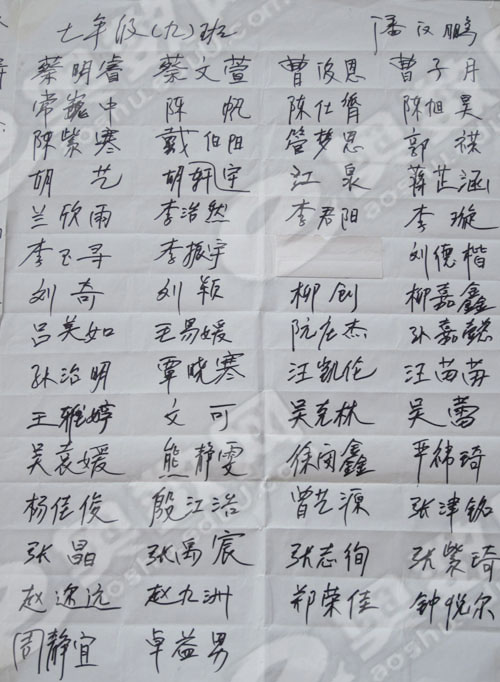 七年级(九)班 潘汉鹏
蔡明睿 蔡文萱 曹俊恩 曹子月
常巍中 陈帆 陈仕膺 陈旭昊
陈紫寒 戴伯阳 管梦思 郭祺
胡艺 胡轩宇 江泉 蒋芷涵
兰欣雨 李浩然 李君阳 李璇
李玉寻 李振宇 刘德楷
刘奇 刘颖 柳创 柳嘉鑫
吕美如 王易媛 阮应杰 孙嘉懿
孙治明 覃晓寒 汪凯伦 汪苗苗
王雅婷 文可 吴克林 吴蕾
吴袁媛 熊静雯 徐闵鑫 严祎琦
杨佳俊 殷江浩 曾艺源 张津铭
张晶 张禹宸 张志徇 张紫琦
赵逸远 赵九洲 郑荣佳 钟悦尔
周静宜 卓益男